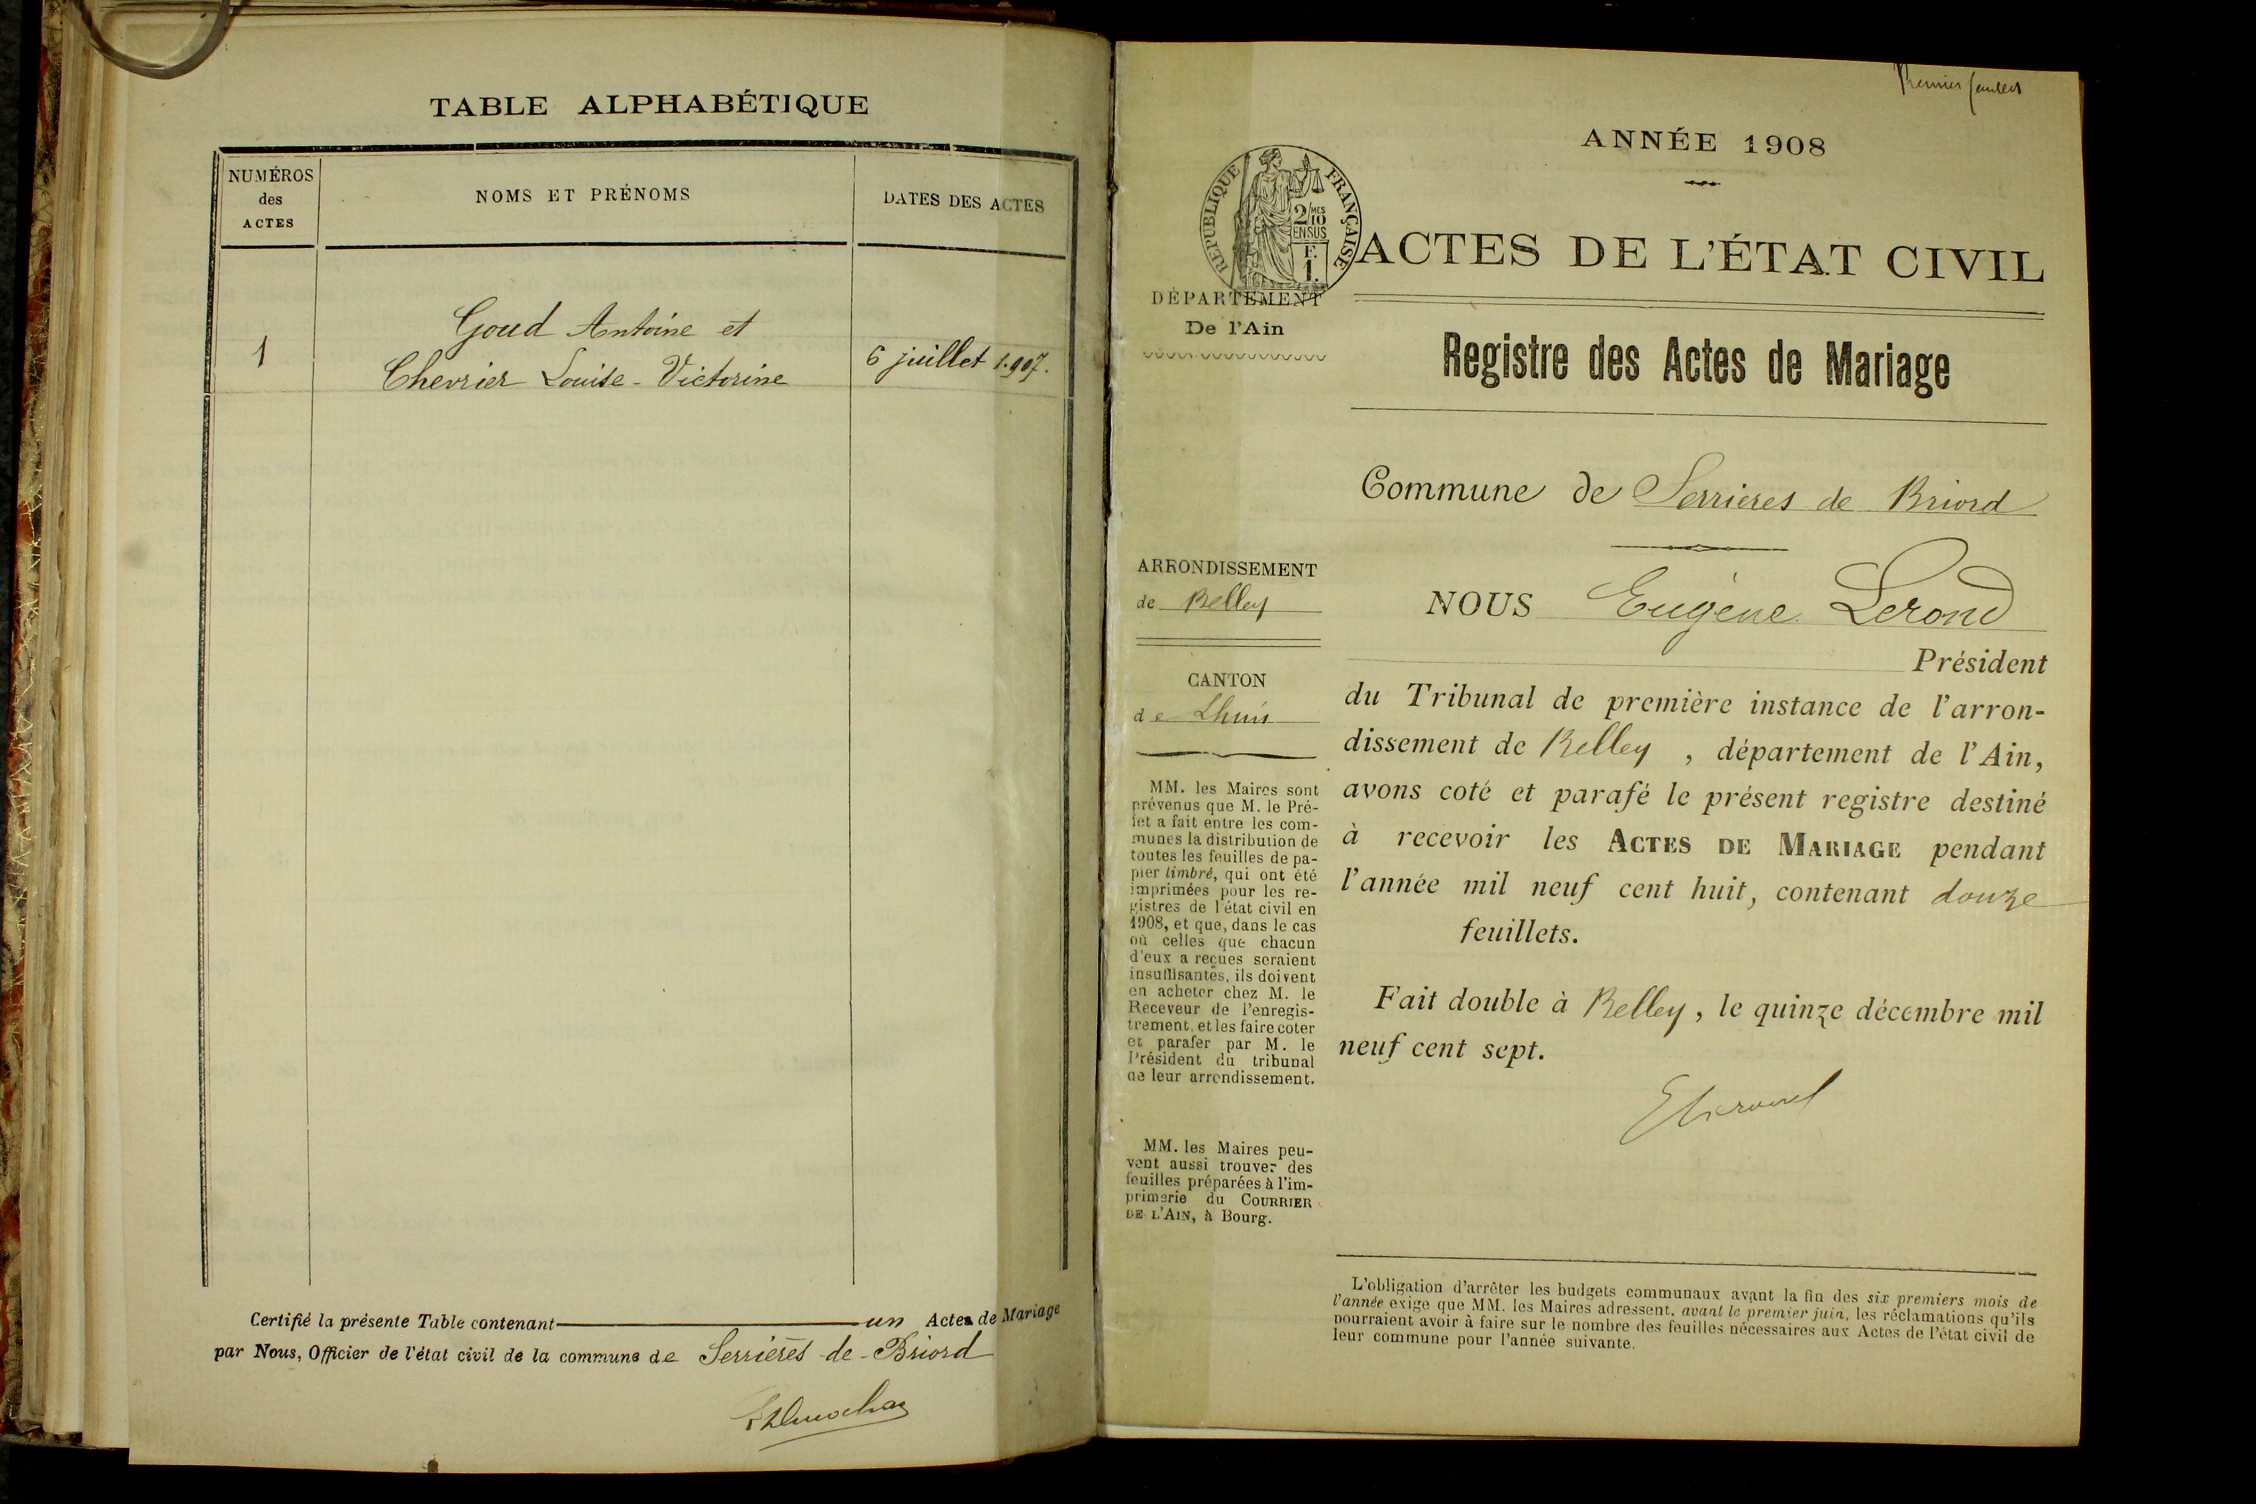 TABLE ALPHABÉTIQUE
NUMÉROS
des
ACTES
NOMS ET PRÉNOMS
DATES DES ACTES
1
Goud Antoine et
Chevrier Louise-Victorine
6 juillet 1.907.
Certifié la présente Table contenant un Actes de Mariage
par Nous, Officier de l'état civil de la commune de Serrières-de-Briord
Premier feuillet
ANNÉE 1908
RÉPUBLIQUE FRANÇAISE
2/10 MES
EN SUS
F.
1.
ACTES DE L'ÉTAT CIVIL
DÉPARTEMENT
De l'Ain
Registre des Actes de Mariage
Commune de Serrieres de Briord
ARRONDISSEMENT
de Belley
CANTON
de Lhuis
MM. les Maires sont
prévenus que M. le Pré-
fet a fait entre les com-
munes la distribution de
toutes les feuilles de pa-
pier timbré, qui ont été
imprimées pour les re-
gistres de l'état civil en
1908, et que, dans le cas
où celles que chacun
d'eux a reçues seraient
insuffisantes, ils doivent
en acheter chez M. le
Receveur de l'enregis-
trement, et les faire coter
et parafer par M. le
Président du tribunal
de leur arrondissement.
MM. les Maires peu-
vent aussi trouver des
feuilles préparées à l'im-
primerie du COURRIER
DE L'AIN, à Bourg.
NOUS Eugène Lerond
Président
du Tribunal de première instance de l'arron-
dissement de Belley, département de l'Ain,
avons coté et parafé le présent registre destiné
à recevoir les ACTES DE MARIAGE pendant
l'année mil neuf cent huit, contenant douze
feuillets.
Fait double à Belley, le quinze décembre mil
neuf cent sept.
ELerond
L'obligation d'arrêter les budgets communaux avant la fin des six premiers mois de
l'année exige que MM. les Maires adressent, avant le premier juin, les réclamations qu'ils
pourraient avoir à faire sur le nombre des feuilles nécessaires aux Actes de l'état civil de
leur commune pour l'année suivante.